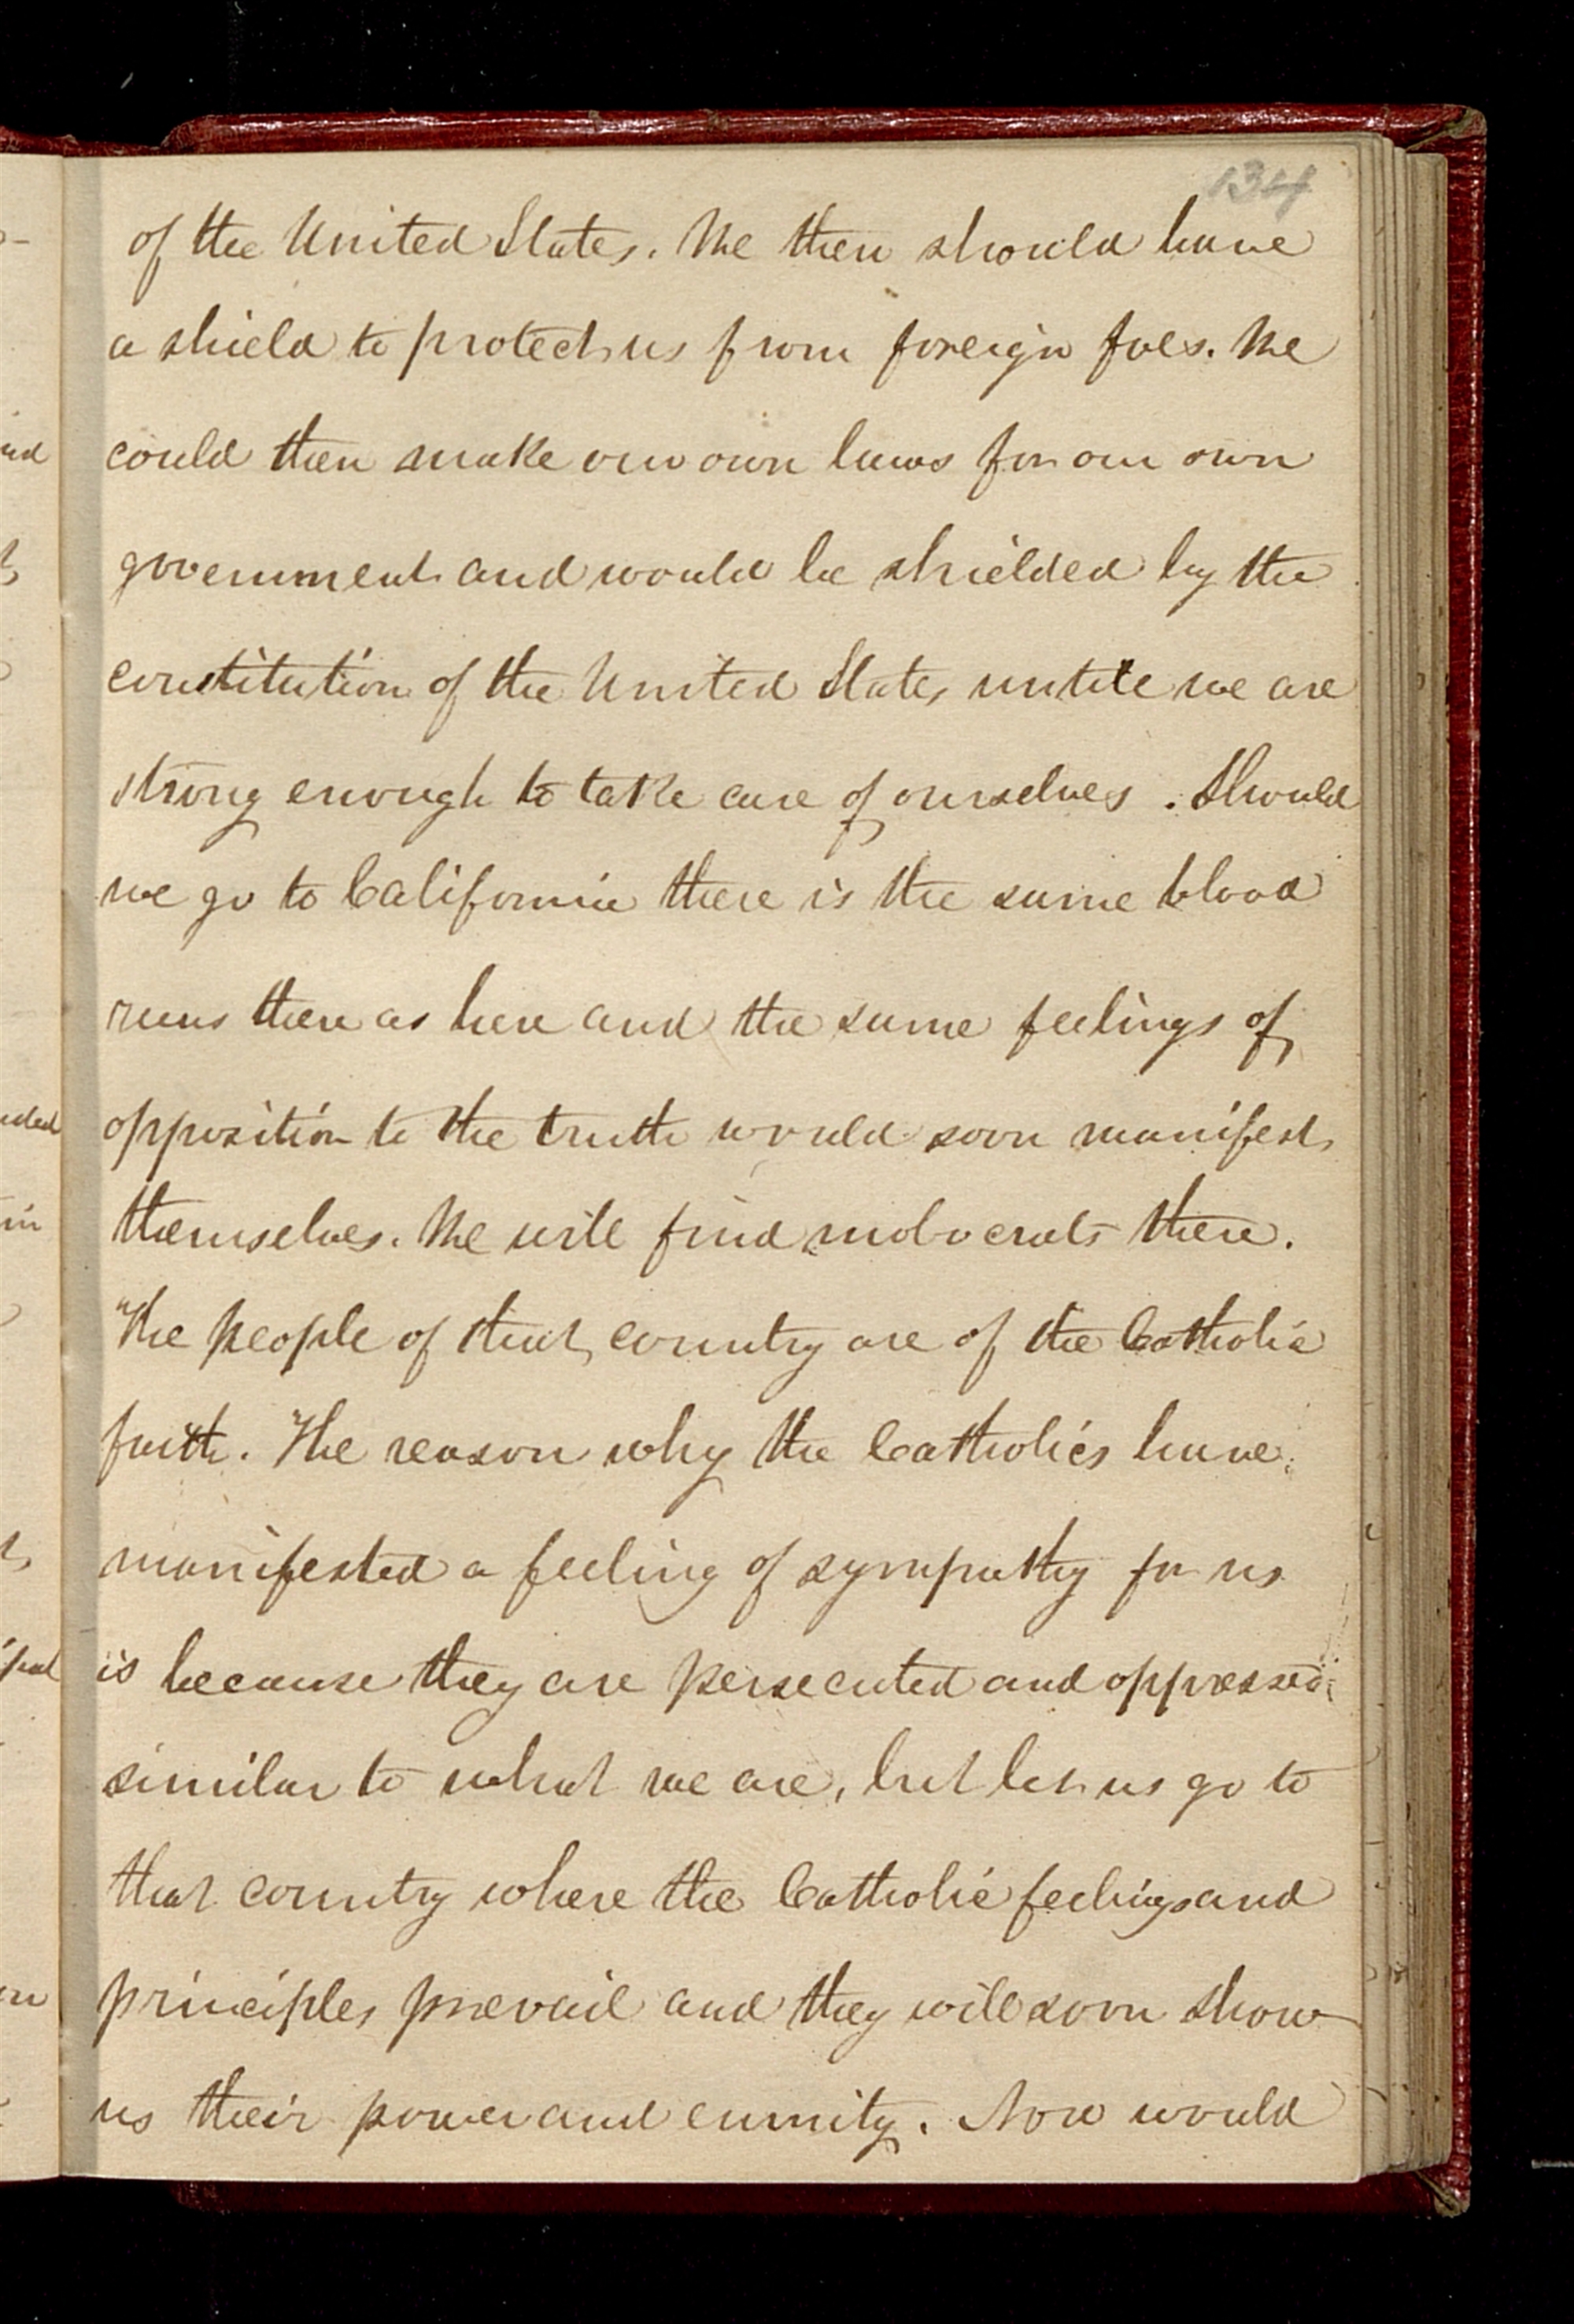 134
of the United States. We then should have
a shield to protect us from foreign foes. We
could then make our own laws for our own
government and would be shielded by the
constitution of the United States untill we are
strong enough to take care of ourselves. Should
we go to California there is the same blood
runs there as here and the same feelings of
opposition to the truth would soon manifest
themselves. We will find mobocrats there.
The people of that country are of the Catholic
faith. The reason why the Catholics have
manifested a feeling of sympathy for us
is because they are persecuted and oppressed
similar to what we are, but let us go to
that country where the Catholic feelings and
principles prevail and they will soon show
us their power and enmity. Now would
nd
uded
in